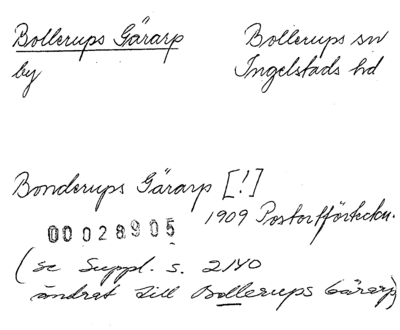 Bollerups Gärarp
Bollerups sn
by
Ingelstads hd
Bonderups Gärarp [!]
1909 Postortförteckn.
00028905
(se Suppl. s. 2140
ändrat till Bollerups Gärarp)